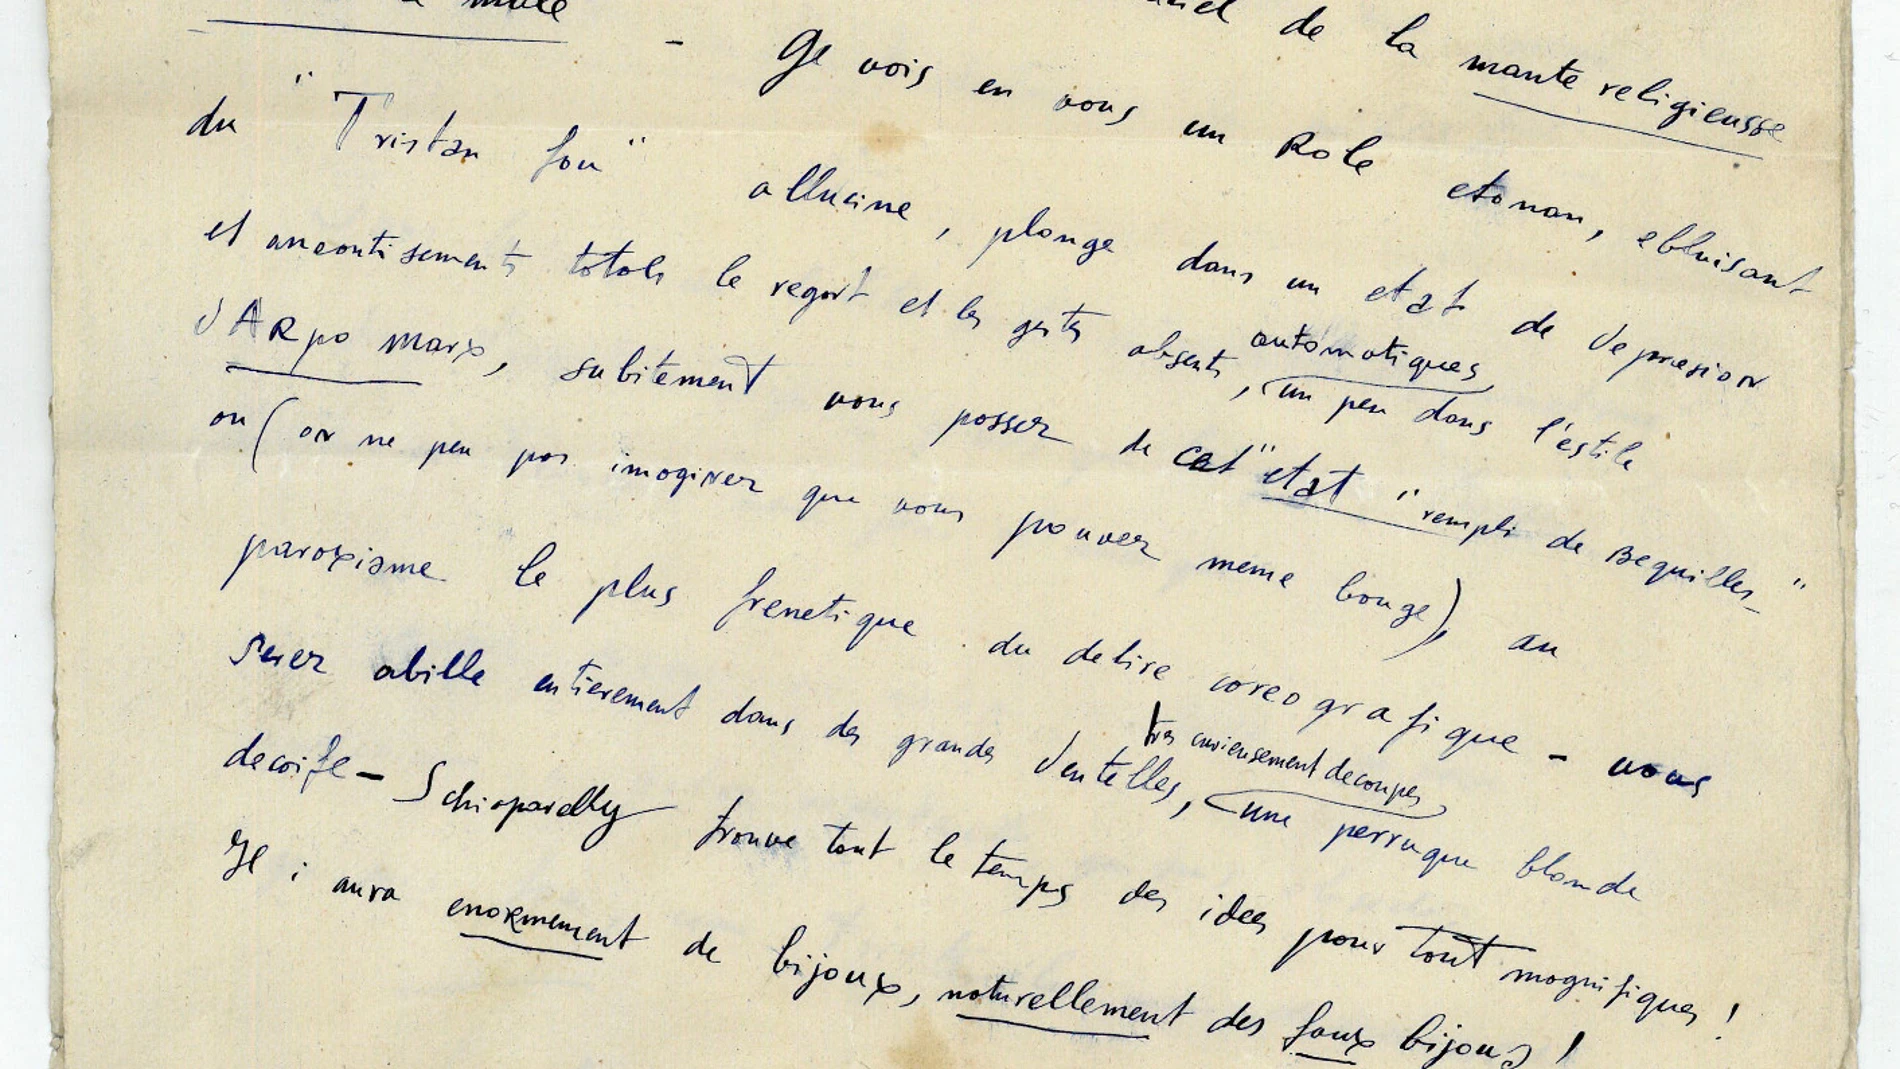 de la mante religieusse
male - Je vois en vous un Role etonan, ebluisant
du "Tristan fou" allucine, plonge dans un etat de depresion
et aneontisements totals le regart et les gestes absents, automatiques, un peu dans l'estile
dARpo marx, subitement vous posser de cet "etat" rempli de Bequilles"
ou (on ne peu pas imaginer que vous pouver meme bouge) au
paroxisme le plus frenetique du delire coreografique - vous
Serez abille entierement dans des grandes dentelles, tres curieusement decoupes, une perruque blonde
decoife - Schiaparelly trouve tout le temps des idees pour tout magnifiques!
Il i aura enormement de bijoux, naturellement des faux bijoux!